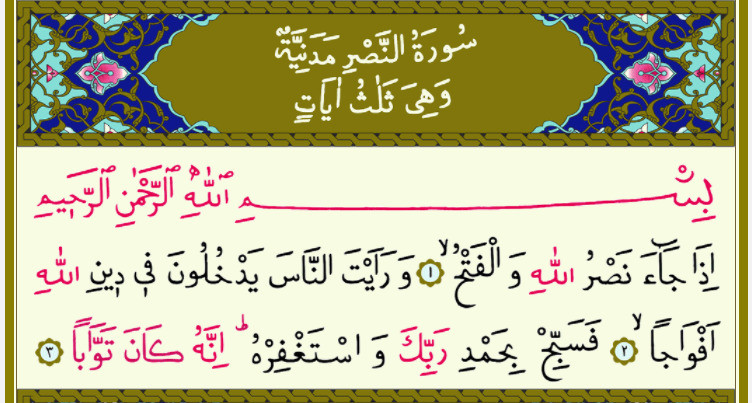 سُورَةُ النَّصْرِ مَدَنِيَّةٌ
وَهِىَ ثَلٰثُ اٰيَاتٍ
بِسْــــــــــــــــــــــمِ ٱللّٰهِ ٱلرَّحْمٰنِ ٱلرَّحٖيمِ
اِذَا جَٓاءَ نَصْرُ اللّٰهِ وَ الْفَتْحُۙ ﴿١﴾ وَ رَاَيْتَ النَّاسَ يَدْخُلُونَ فٖى دٖينِ اللّٰهِ
اَفْوَاجاًۙ ﴿٢﴾ فَسَبِّحْ بِحَمْدِ رَبِّكَ وَ اسْتَغْفِرْهُؕ اِنَّهُ كَانَ تَوَّاباً ﴿٣﴾